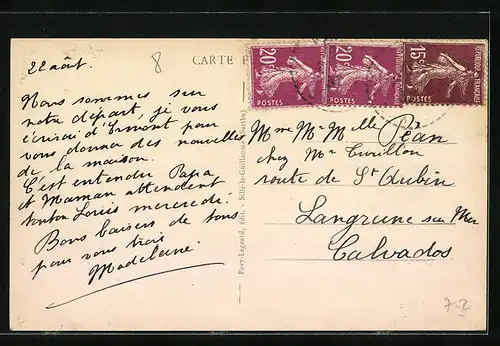 22 août.
8
CARTE
20c
POSTES
20c
POSTES
15c
POSTES
Nous sommes sur
notre départ, je vous
écrirai d'Ermont pour
vous donner des nouvelles
de la maison.
C'est entendu Papa
et Maman attendent
tonton Louis mercredi.
Bons baisers de tous
pour vous trois
Madeleine.
Pavy-Legeard, édit. Sillé-le-Guillaume (Sarthe)
Mme Mr Melle Péan
chez Mr
route de St Aubin
Langrune sur Mer
Calvados
7-2